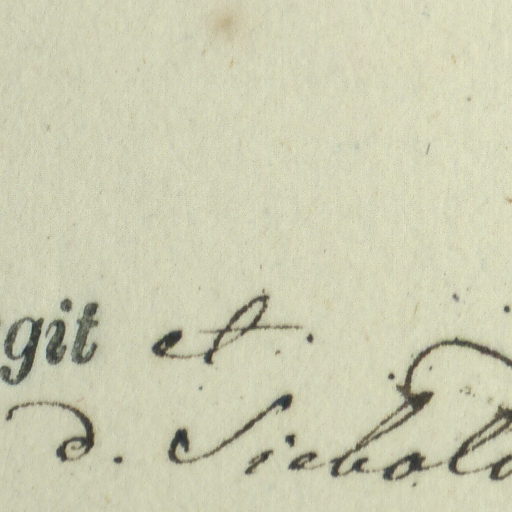 git et.
d. Siebold